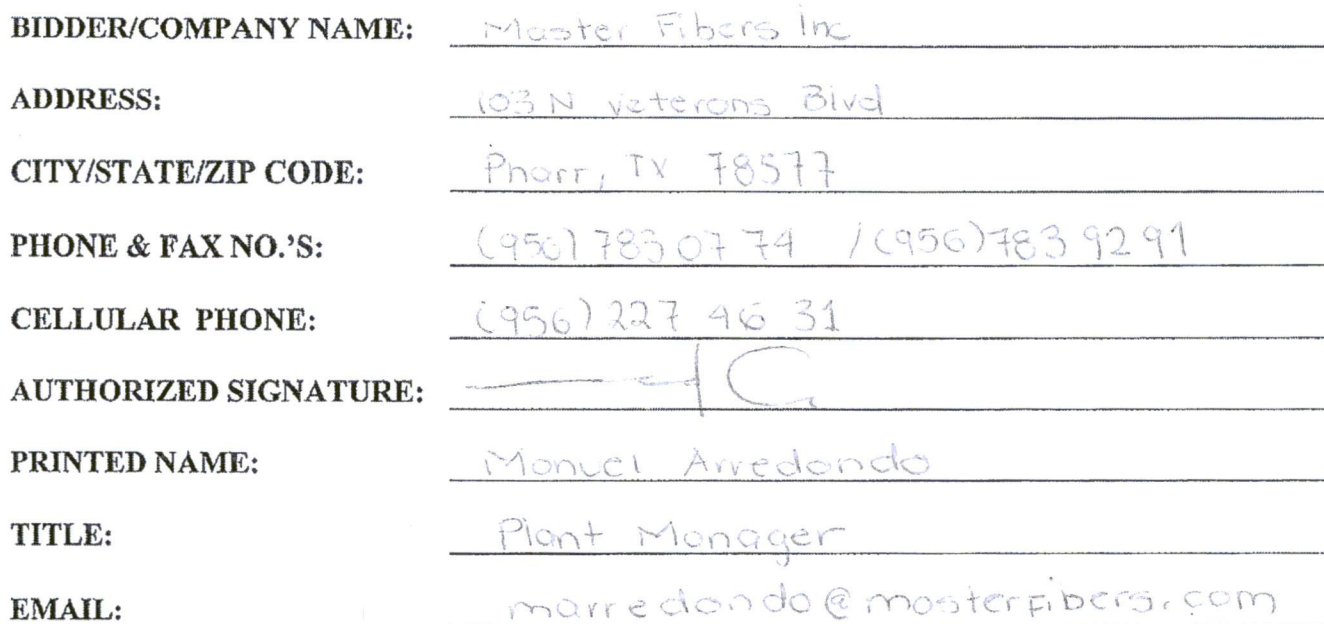 BIDDER/COMPANY NAME: Master Fibers Inc
ADDRESS: 103 N veterans Blvd
CITY/STATE/ZIP CODE: Pharr, TX 78577
PHONE & FAX NO.'S: (956) 783 07 74 / (956) 783 92 91
CELLULAR PHONE: (956) 227 46 31
AUTHORIZED SIGNATURE:
PRINTED NAME: Manuel Arredondo
TITLE: Plant Manager
EMAIL: marredondo@masterfibers.com